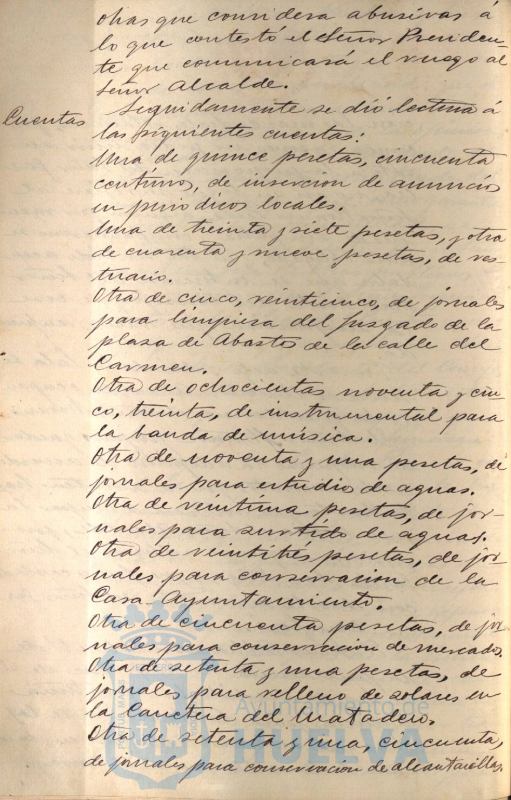 otras que considera abusivas á
lo que contestó el Señor Presiden-
te que comunicará el ruego al
Señor Alcalde.
Cuentas
Seguidamente se dió lectura á
las siguientes cuentas:
Una de quince pesetas, cincuenta
centimos, de insercion de anuncios
en periodicos locales.
Una de treinta y siete pesetas, y otra
de cuarenta y nueve pesetas, de ves-
tuario.
Otra de cinco, veinticinco, de jornales
para limpieza del Juzgado de la
plaza de Abastos de la calle del
Carmen.
Otra de ochocientas noventa y cin-
co, treinta, de instrumental para
la banda de música.
Otra de noventa y una pesetas, de
jornales para estudio de aguas.
Otra de veintiuna pesetas, de jor-
nales para surtido de aguas.
Otra de veintitrés pesetas, de jor-
nales para conservacion de la
Casa Ayuntamiento.
Otra de cincuenta pesetas, de jor-
nales para conservacion de mercados.
Otra de setenta y una pesetas, de
jornales para relleno de solares en
la Carretera del Matadero.
Otra de setenta y una, cincuenta,
de jornales para conservacion de alcantarillas.
Ayuntamiento de
HUELVA